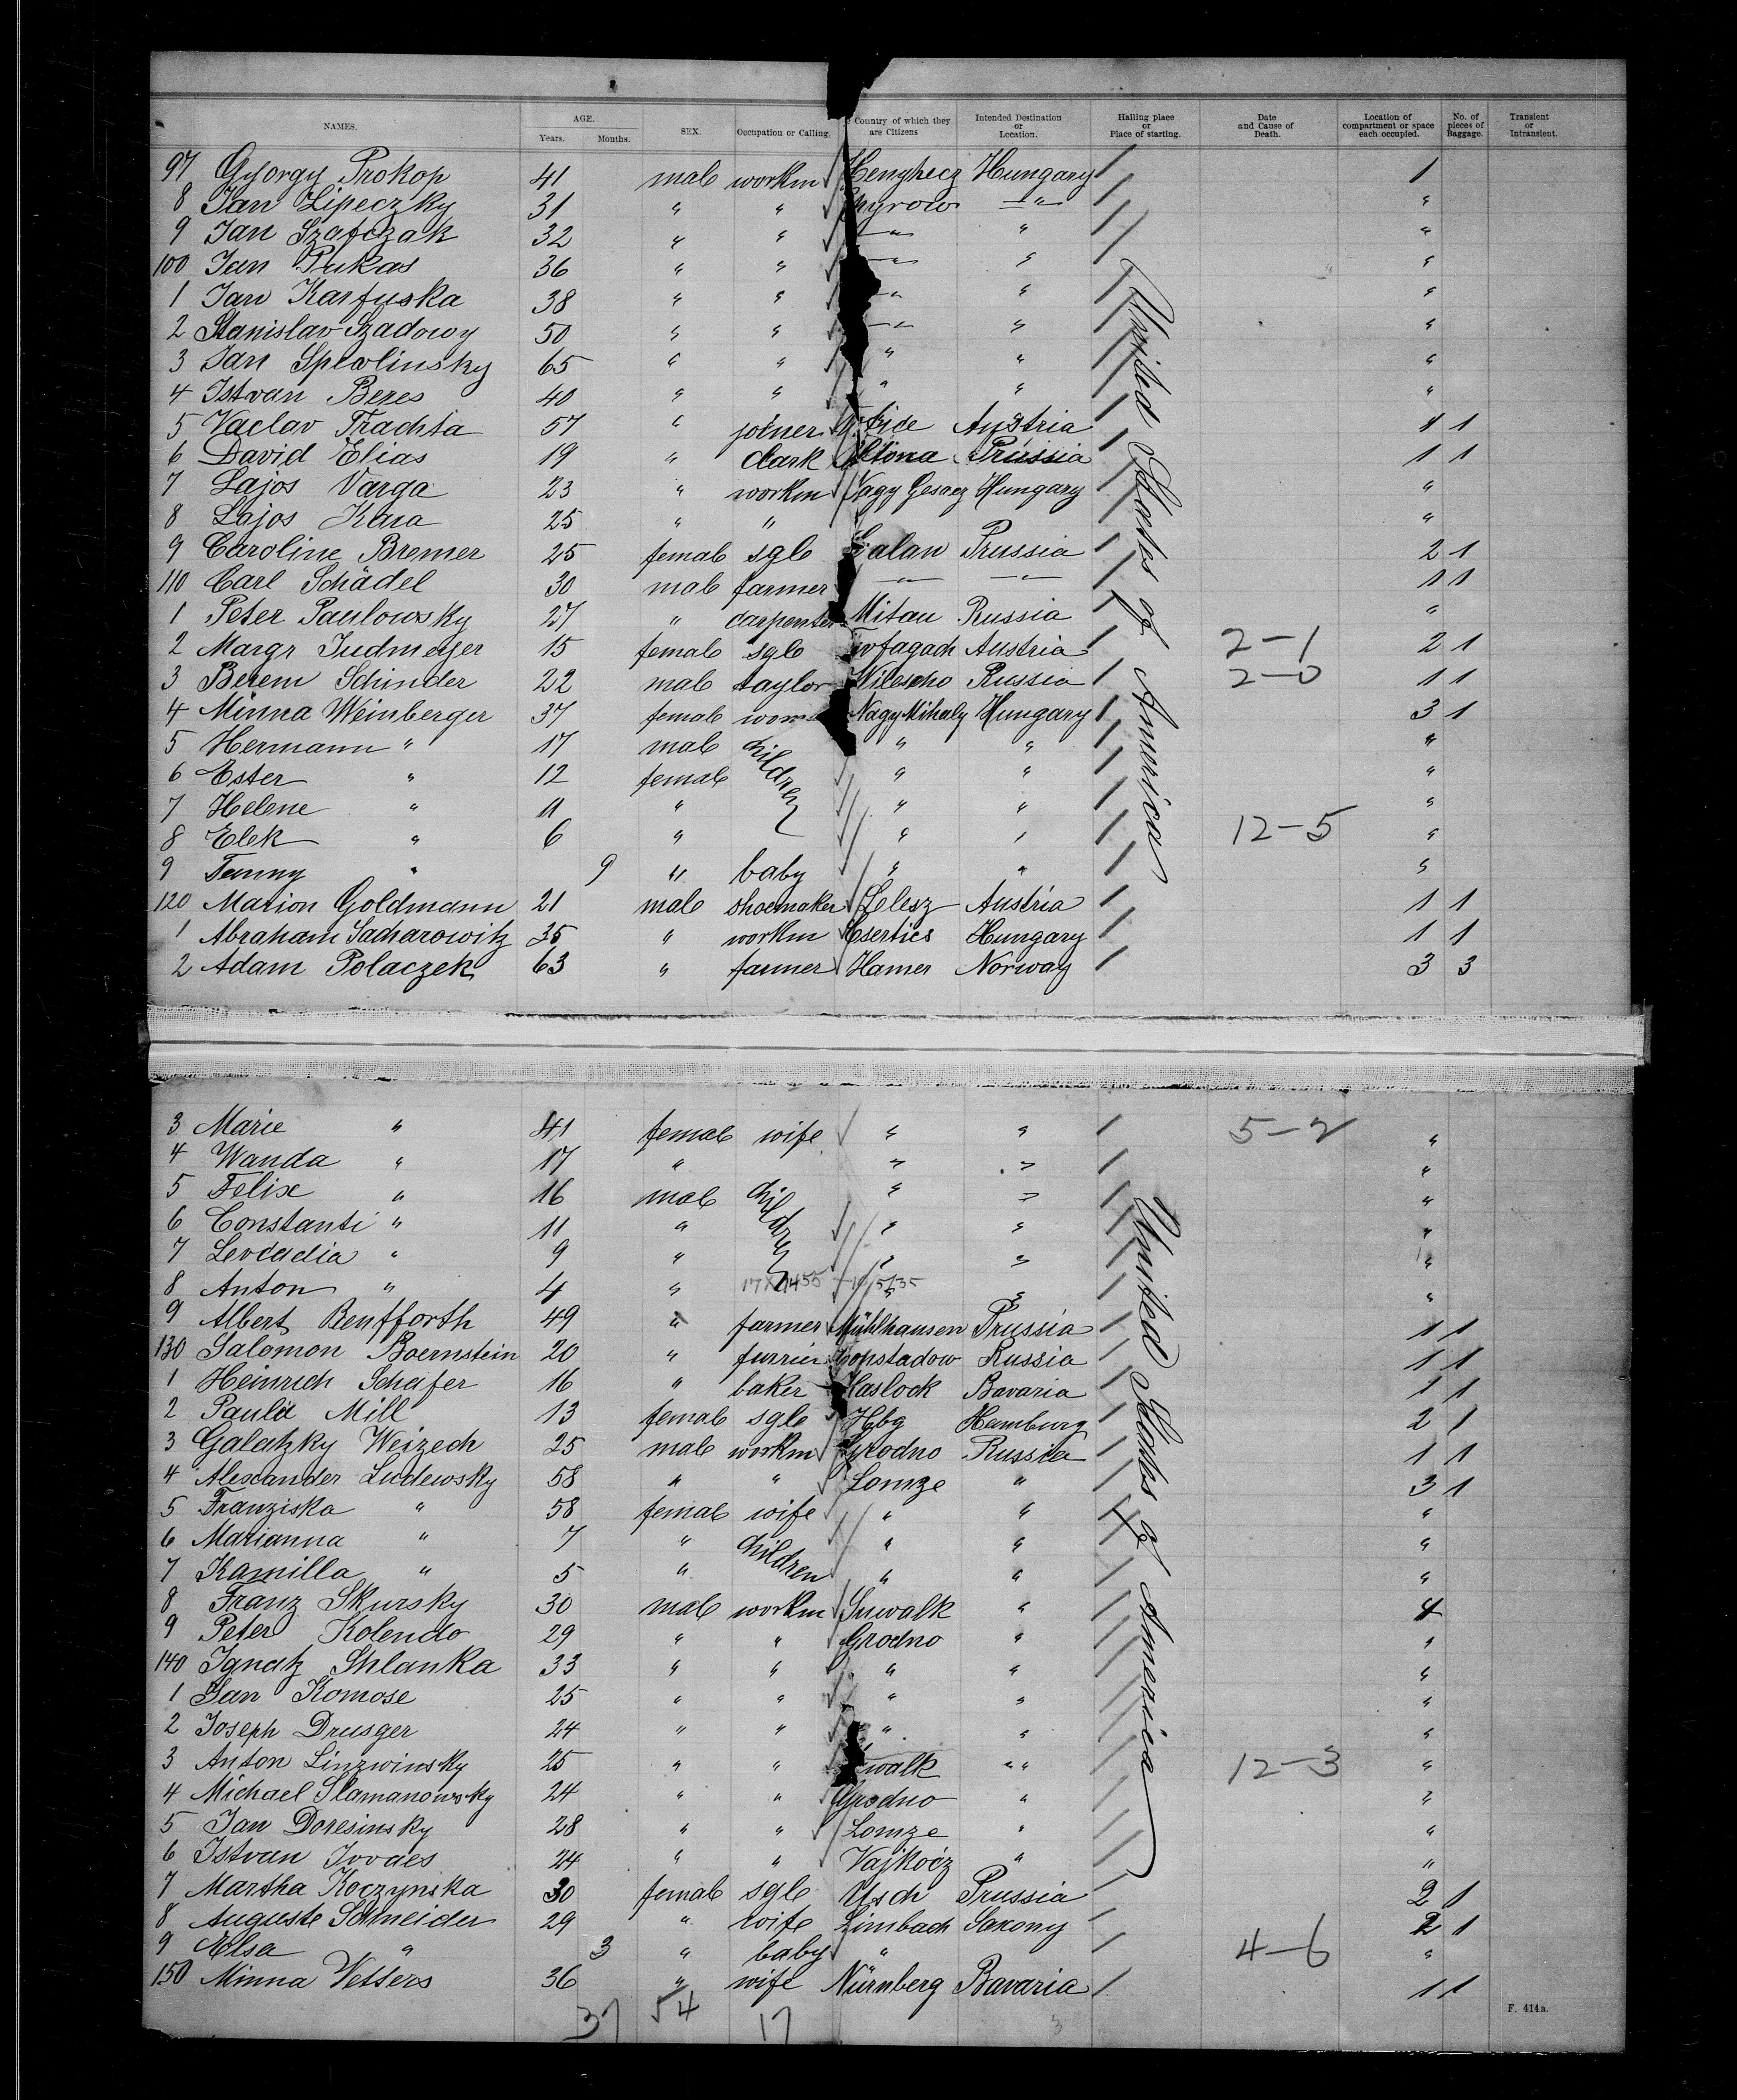 NAMES. AGE. Years. Months. SEX. Occupation or Calling. Country of which they are Citizens Intended Destination or Location. Hailing place or Place of starting. Date and Cause of Death. Location of compartment or space each occupied. No. of pieces of Baggage. Transient or Intransient.
97 Gyorgy Prokop 41 male workm Hungary 1
8 Jan Lipeczky 31 " " —"— "
9 Jan Szafczak 32 " " —"— " "
100 Jan Pukas 36 " " —"— " "
1 Jan Karfuska 38 " " —"— " "
2 Stanislav Szadowy 50 " " —"— " "
3 Jan Spewlinsky 65 " " " " "
4 Istvan Beres 40 " " " " "
5 Vaclav Trachta 57 " joiner Austria 1 1
6 David Elias 19 " clark Altona Prussia 1 1
7 Lajos Varga 23 " workm Nagy Hungary "
8 Lajos Kara 25 " " "
9 Caroline Bremer 25 female sgle Prussia 2 1
110 Carl Schädel 30 male farmer —"— —"— 1 1
1 Peter Paulowsky 27 " carpenter Mitau Russia "
2 Margr Judmeyer 15 female sgle Austria 2-1 2 1
3 Berem Schinder 22 male taylor Russia 2-0 1 1
4 Minna Weinberger 37 female Nagy Mihaly Hungary 3 1
5 Hermann " 17 male children " " "
6 Ester " 12 female " " "
7 Helene " 11 " " " "
8 Elek " 6 " " " 12-5 "
9 Fanny " 9 " baby " " "
120 Marion Goldmann 21 male shoemaker Lelesz Austria 1 1
1 Abraham Sacharowitz 35 " workm Csertics Hungary 1 1
2 Adam Polaczek 63 " farmer Hamer Norway 3 3
United States of America
3 Marie " 41 female wife " " 5-2 "
4 Wanda " 17 " " " "
5 Felix " 16 male children " " "
6 Constanti " 11 " " " "
7 Leocadia " 9 " " " "
8 Anton " 4 " " " "
9 Albert Benfforth 49 " farmer Mühlhausen Prussia 1 1
130 Salomon Boernstein 20 " furrier Russia 1 1
1 Heinrich Schafer 16 " baker Haslock Bavaria 1 1
2 Paula Mill 13 female sgle Hbg Hamburg 2 1
3 Galatzky Weizech 25 male workm Grodno Russia 1 1
4 Alexander Ludewsky 58 " " Lomze " 3 1
5 Franziska " 58 female wife " " "
6 Marianna " 7 " children " " "
7 Kamilla " 5 " " " "
8 Franz Skursky 30 male workm Suwalk " 4
9 Peter Kolendo 29 " " Grodno " "
140 Ignatz Shlanka 33 " " " " "
1 Jan Komose 25 " " " " "
2 Joseph Drusger 24 " " " " "
3 Anton Linzwinsky 25 " " Suwalk " " 12-3 "
4 Michael Slamanowsky 24 " " Grodno " "
5 Jan Doresinsky 28 " " Lomze " "
6 Istvan 24 " " Vajkócz " "
7 Martha Koczynska 30 female sgle Usch Prussia 2 1
8 Auguste Schneider 29 " wife Limbach Saxony 2 1
9 Elsa " 3 " baby " 4-6 "
150 Minna Vetters 36 " wife Nürnberg Bavaria 1 1
United States of America
37 54 17 3
F. 414a.